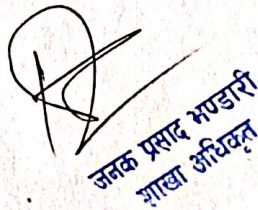 जनक प्रसाद भण्डारी
शाखा अधिकृत